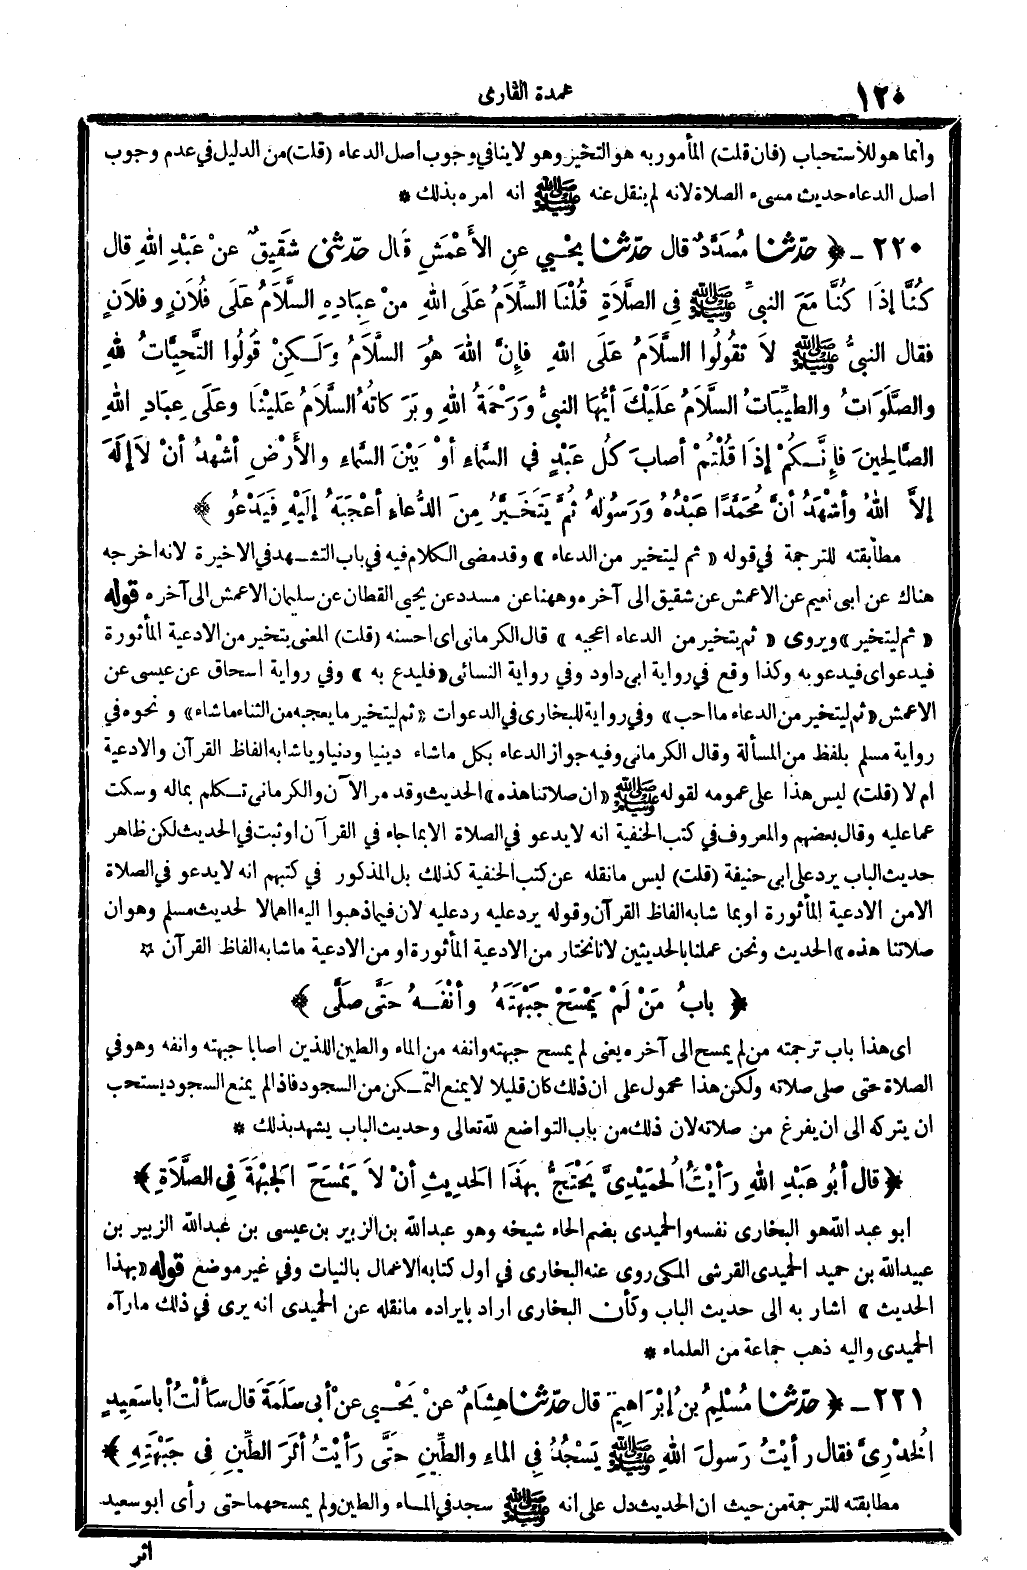 ١٢٠
عمدة القارى
وأنما هو للأستحباب (فان قلت) المأمور به هو التخيير وهو لاينافي وجوب أصل الدعاء (قلت) من الدليل في عدم وجوب
أصل الدعاء حديث مسىء الصلاة لانه لم ينقل عنه ﷺ انه امره بذلك *
٢٢٠ ـ ﴿ حدّثنا مُسَدَّدٌ قال حدّثنا يحْيى عنِ الأَعْمَشِ قال حدّثنى شَقِيقٌ عنْ عَبْدِ اللهِ قال
كُنَّا إذَا كُنَّا مَعَ النبىِّ ﷺ فِى الصَّلَاةِ قُلْنَا السَّلاَمُ عَلَى اللهِ منْ عِبادِهِ السَّلاَمُ عَلَى فُلاَنٍ وفلاَنٍ
فقال النبىُّ ﷺ لاَ تقُولُوا السَّلاَمُ عَلَى اللهِ فإنَّ اللهَ هُوَ السَّلاَمُ ولَـكِنْ قُولُوا التَّحِيَّاتُ للهِ
والصَّلَوَاتُ والطيِّبَاتُ السَّلاَمُ عَلَيْكَ أيُّهَا النبىُّ ورَحْمَةُ اللهِ وبَرَكاتُهُ السَّلاَمُ عَلَيْنَا وعَلَى عِبادِ اللهِ
الصَّالِحِينَ فإنَّـكُمْ إذَا قُلْتُمْ أصابَ كُلَّ عَبْدٍ في السَّماءِ أوْ بَيْنَ السَّماءِ والأَرْضِ أشْهَدُ أنْ لاَ إلَهَ
إلاَّ اللهُ وأشْهَدُ أنَّ مُحَمَّدًا عَبْدُهُ ورَسُولُهُ ثُمَّ يَتَخَيَّرُ مِنَ الدُّعاءِ أعْجَبَهُ إلَيْهِ فَيَدْعُو ﴾
مطابقته للترجمة في قوله « ثم ليتخير من الدعاء » وقد مضى الكلام فيه في باب التشهد في الاخيرة لانه اخرجه
هناك عن ابى نعيم عن الاعمش عن شقيق الى آخره وههنا عن مسدد عن يحيى القطان عن سليمان الاعمش الى آخره قوله
« ثم ليتخير » ويروى « ثم يتخير من الدعاء اعجبه » قال الكرمانى اى احسنه (قلت) المعنى يتخير من الادعية المأثورة
فيدعو اى فيدعو به وكذا وقع في رواية ابى داود وفي رواية النسائى « فليدع به » وفي رواية اسحاق عن عيسى عن
الاعمش « ثم ليتخير من الدعاء ما احب » وفي رواية للبخارى في الدعوات « ثم ليتخير ما يعجبه من الثناء ماشاء » و نحوه في
رواية مسلم بلفظ من المسألة وقال الكرمانى وفيه جواز الدعاء بكل ماشاء دينيا ودنيويا شابه الفاظ القرآن والادعية
ام لا (قلت) ليس هذا على عمومه لقوله ﷺ « ان صلاتنا هذه » الحديث وقد مر الآن والكرمانى تـكلم بماله وسكت
عما عليه وقال بعضهم والمعروف في كتب الحنفية انه لا يدعو في الصلاة الا بما جاء في القرآن او ثبت في الحديث لكن ظاهر
حديث الباب يرد على ابى حنيفة (قلت) ليس مانقله عن كتب الحنفية كذلك بل المذكور في كتبهم انه لا يدعو في الصلاة
الا من الادعية المأثورة او بما شابه الفاظ القرآن وقوله يرد عليه رد عليه لان فيما ذهبوا اليه اهمالا لحديث مسلم وهو ان
صلاتنا هذه » الحديث ونحن عملنا بالحديثين لانا نختار من الادعية المأثورة او من الادعية ماشابه الفاظ القرآن *
﴿ بابُ مَنْ لَمْ يَمْسَحْ جَبْهَتَهُ وأنْفَـهُ حَتَّى صَلَّى ﴾
اى هذا باب ترجمته من لم يمسح الى آخره يعنى لم يمسح جبهته وانفه من الماء والطين اللذين اصابا جبهته وانفه وهو في
الصلاة حتى صلى صلاته ولكن هذا محمول على ان ذلك كان قليلا لا يمنع التمـكن من السجود فاذا لم يمنع السجود يستحب
ان يتركه الى ان يفرغ من صلاته لان ذلك من باب التواضع لله تعالى وحديث الباب يشهد بذلك *
﴿ قال أبُو عَبْدِ اللهِ رَأيْتُ الحمَيْدِىَّ يَحْتَجُّ بهَذَا الحديثِ أنْ لاَ يَمْسَحَ الجَبْهَةَ فِى الصَّلاَةِ ﴾
ابو عبد الله هو البخارى نفسه والحميدى بضم الحاء شيخه وهو عبدالله بن الزبير بن عيسى بن عبدالله الزبير بن
عبيدالله بن حميد الحميدى القرشى المكى روى عنه البخارى في اول كتابه الاعمال بالنيات وفي غير موضع قوله « بهذا
الحديث » اشار به الى حديث الباب وكأن البخارى اراد بايراده مانقله عن الحميدى انه يرى في ذلك مارآه
الحميدى واليه ذهب جماعة من العلماء *
٢٢١ ـ ﴿ حدّثنا مُسْلِمُ بنُ إبْرَاهِيمَ قال حدّثنا هِشَامٌ عنْ يَحْيى عنْ أبى سَلَمَةَ قال سَألْتُ أباسَعِيدٍ
الخُدْرِىَّ فقال رأيْتُ رَسولَ اللهِ ﷺ يَسْجُدُ فِى الماءِ والطِّينِ حَتَّى رَأيْتُ أثَرَ الطِّينِ فِى جَبْهَتِهِ ﴾
مطابقته للترجمة من حيث ان الحديث دل على انه ﷺ سجد في المـاء والطين ولم يمسحهما حتى رأى ابو سعيد
اثر